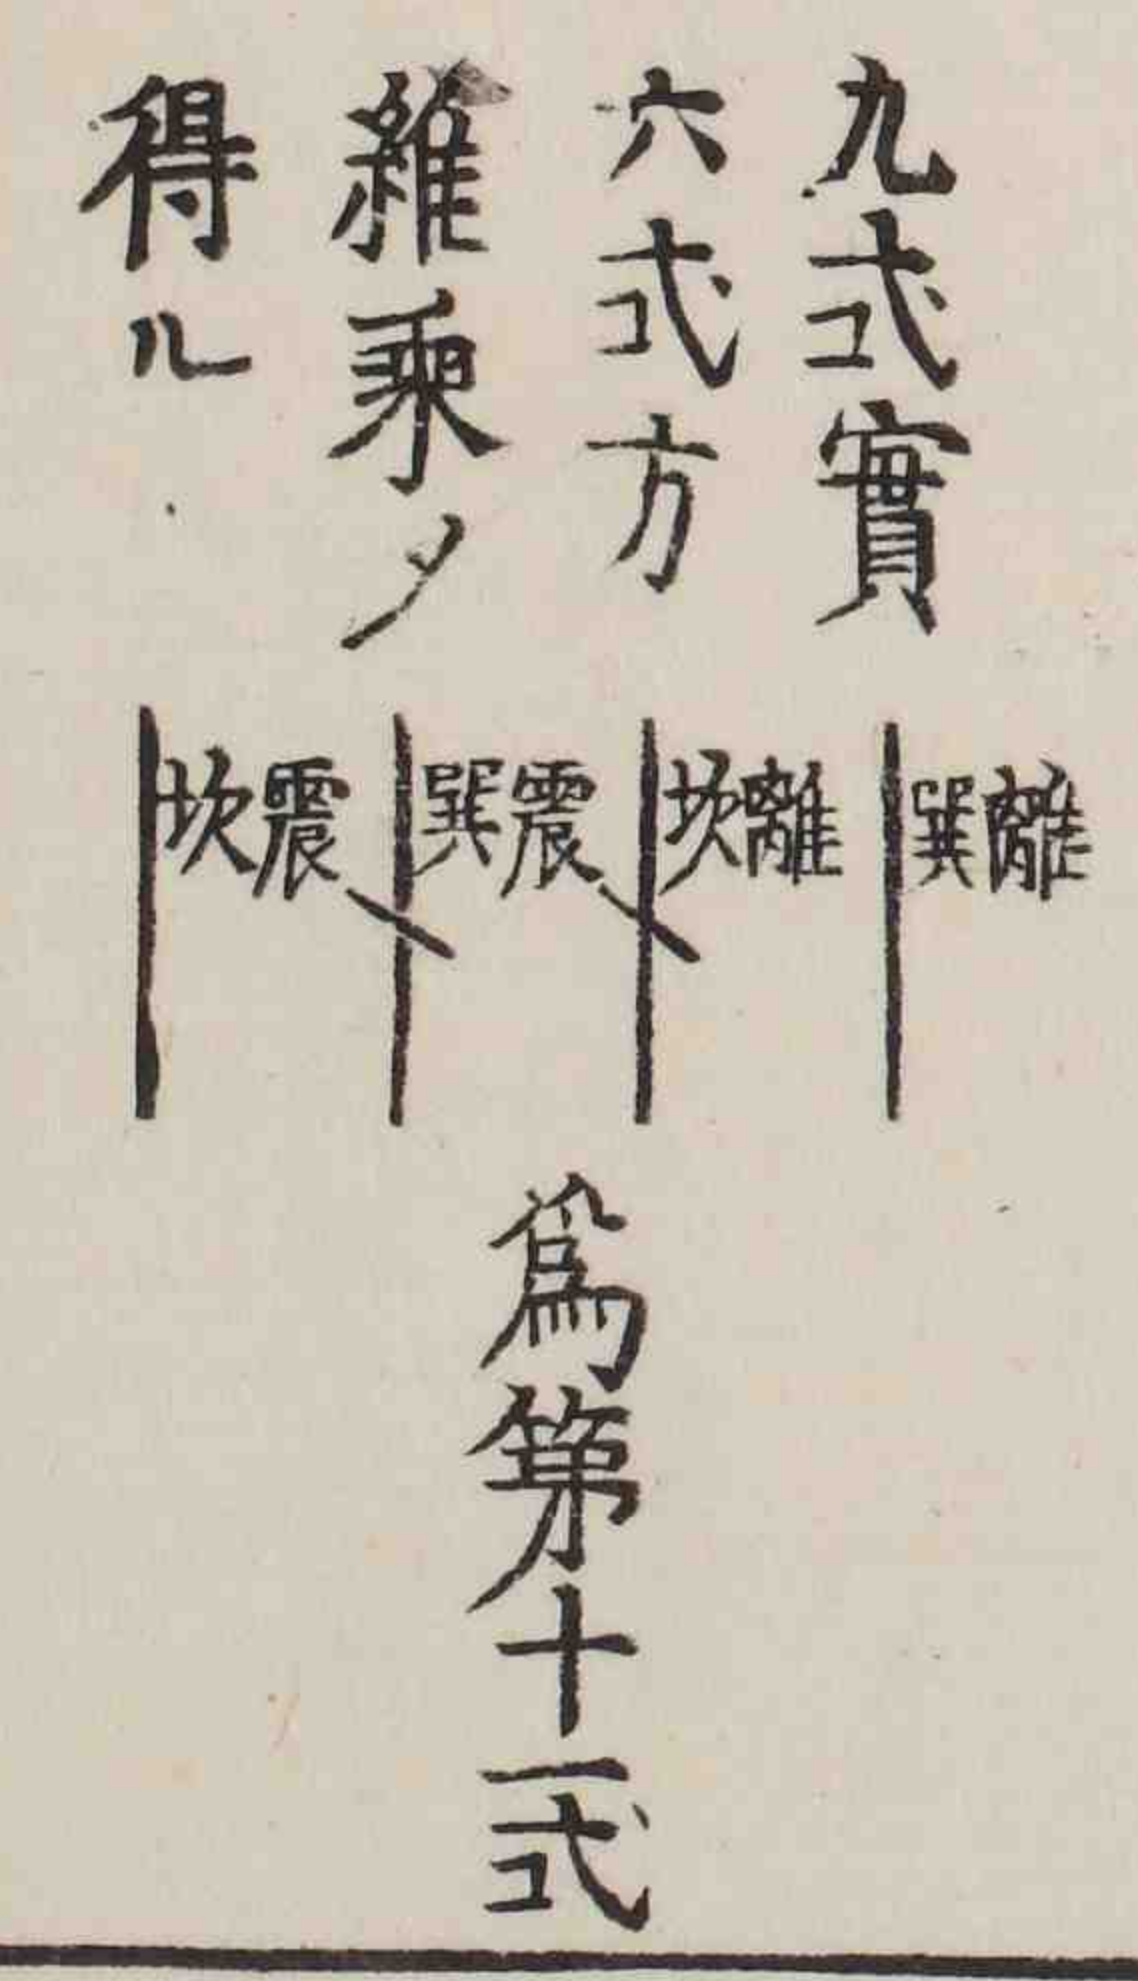 九式實
六式方
維乘〆
得ル
離巽
離坎
震巽
震坎
爲第十一式